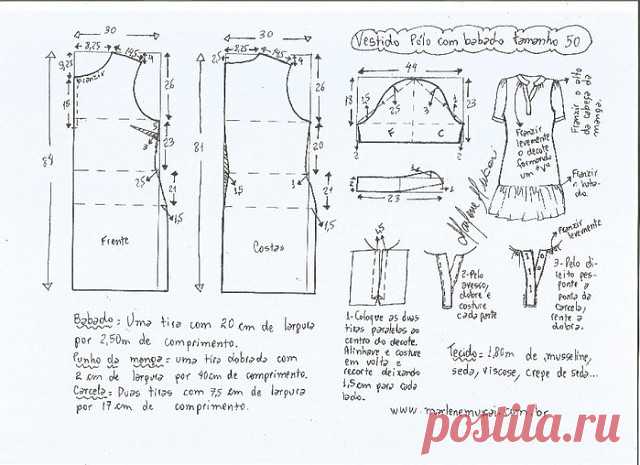 Vestido Pólo com babado tamanho 50
30
8,25
14,5
4
9,25
Franzir
15
26
84
3
23
2,5
21
1,5
Frente
30
2,5
8,25
14,5
4
26
81
20
1,5
1
21
1,5
Costas
44
18
1,5
3
23
F
C
2
2
1
23
Franzir o alto
da cabeça da
manga.
Franzir
levemente
o decote
formando
um "V"
Franzir
o baba-
do.
Marlene Mukai
Franzir
levemente
1-Coloque as duas
tiras paralelas ao
centro do decote.
Alinhave e costure
em volta e
recorte deixando
1,5cm para cada
lado.
2-Pelo
avesso,
dobre e
costure
cada parte
3-Pelo di-
reito pes-
ponte a
ponta da
carcela,
rente a
dobra.
Babado: Uma tira com 20 cm de largura
por 2,50m de comprimento.
Punho da manga: uma tira dobrada com
2 cm de largura por 40cm de comprimento.
Carcela: Duas tiras com 7,5 cm de largura
por 17 cm de comprimento.
Tecido: 1,80m de musseline,
seda, viscose, crepe de seda...
www.marlenemukai.com.br
postila.ru